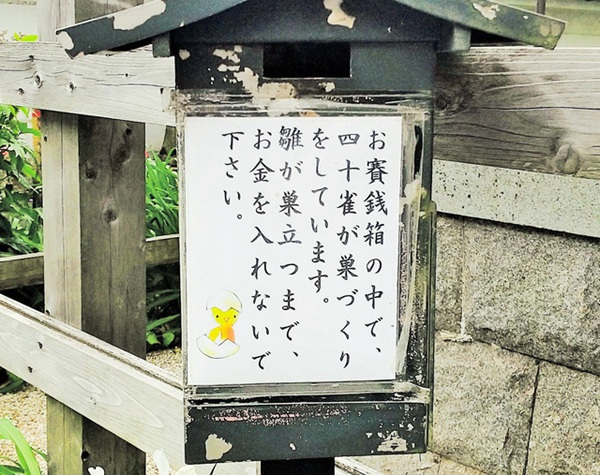 お賽銭箱の中で、
四十雀が巣づくり
をしています。
雛が巣立つまで、
お金を入れないで
下さい。